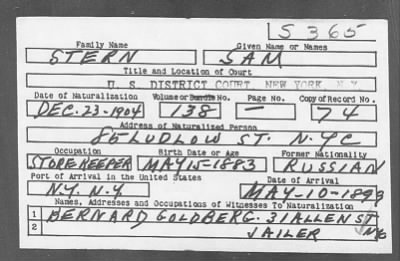 S 365
Family Name Given Name or Names
STERN SAM
Title and Location of Court
U. S. DISTRICT COURT NEW YORK N.Y.
Date of Naturalization Volume or Bundle No. Page No. Copy of Record No.
DEC. 23-1904 138 — 74
Address of Naturalized Person
85 LUDLOW ST. N.Y.C
Occupation Birth Date or Age Former Nationality
STOREKEEPER MAY 15-1883 RUSSIAN
Port of Arrival in the United States Date of Arrival
N.Y. N.Y. MAY-10-1893
Names, Addresses and Occupations of Witnesses To Naturalization
1 BERNARD GOLDBERG. 31 ALLEN ST
2 JAILER NYC